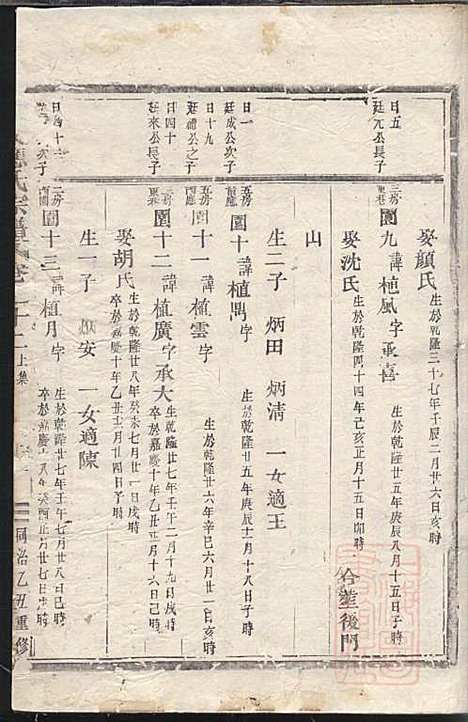 娶顏氏 生於乾隆三十七年壬辰二月廿六日亥時
日五
廷元公長子
三房
園九 諱植風 字承喜 生於乾隆廿五年庚辰八月十五日子時
娶沈氏 生於乾隆四十四年己亥正月十五日卯時 合葬後門
山
日一
廷成公次子
五房
園十 諱植鼎 字 生於乾隆廿五年庚辰十二月十八日子時
生二子 炳田 炳清 一女適王
日十九
廷禮公之子
五房
西應
園十一 諱植雲 字 生於乾隆廿六年辛巳六月廿一日亥時
日四十
廷來公長子
三房
園十二 諱植廣 字承大 生於乾隆廿七年壬午二月十九日戌時 卒於嘉慶十年乙丑十二月十六日己時
娶胡氏 生於乾隆廿八年癸未七月廿一日戌時 卒於嘉慶十年乙丑十一月廿四日子時
生一子 安 一女適陳
次子
二房
西園
園十三 諱植月 字 生於乾隆廿七年壬午七月廿八日己時
氏宗譜 卷二十二 上集 同治乙丑重修